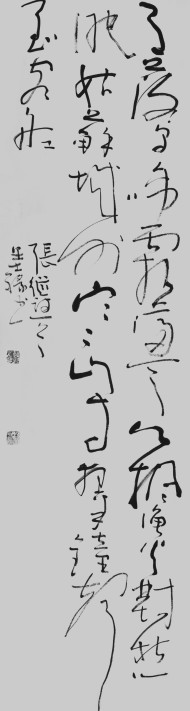 月落烏啼霜滿天江楓漁火對愁
眠姑蘇城外寒山寺夜半鐘聲
到客船
張繼詩